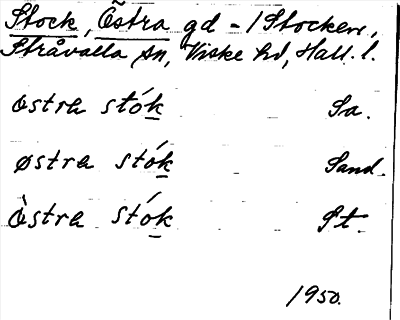 Stock, Östra gd - /Stocken,
Stråvalla sn, Viske hd, Hall. l.
østra stók Sa.
østra stók Sand.
òstra stók St.
1950.